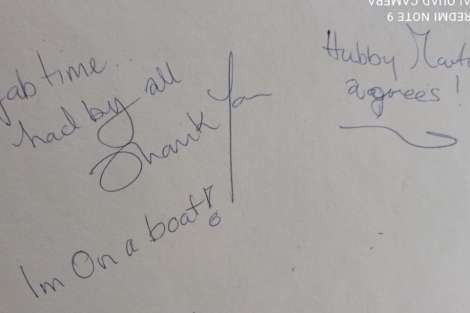 ab time..
had by all
Thank You
Im On a boat!
Hubby
agrees!
REDMI NOTE 9
AI QUAD CAMERA